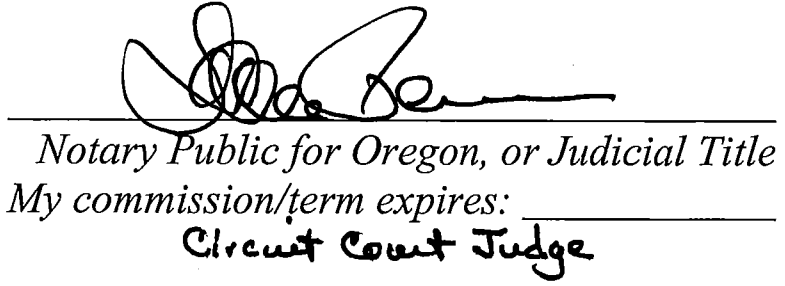 Notary Public for Oregon, or Judicial Title
My commission/term expires:
Circuit Court Judge